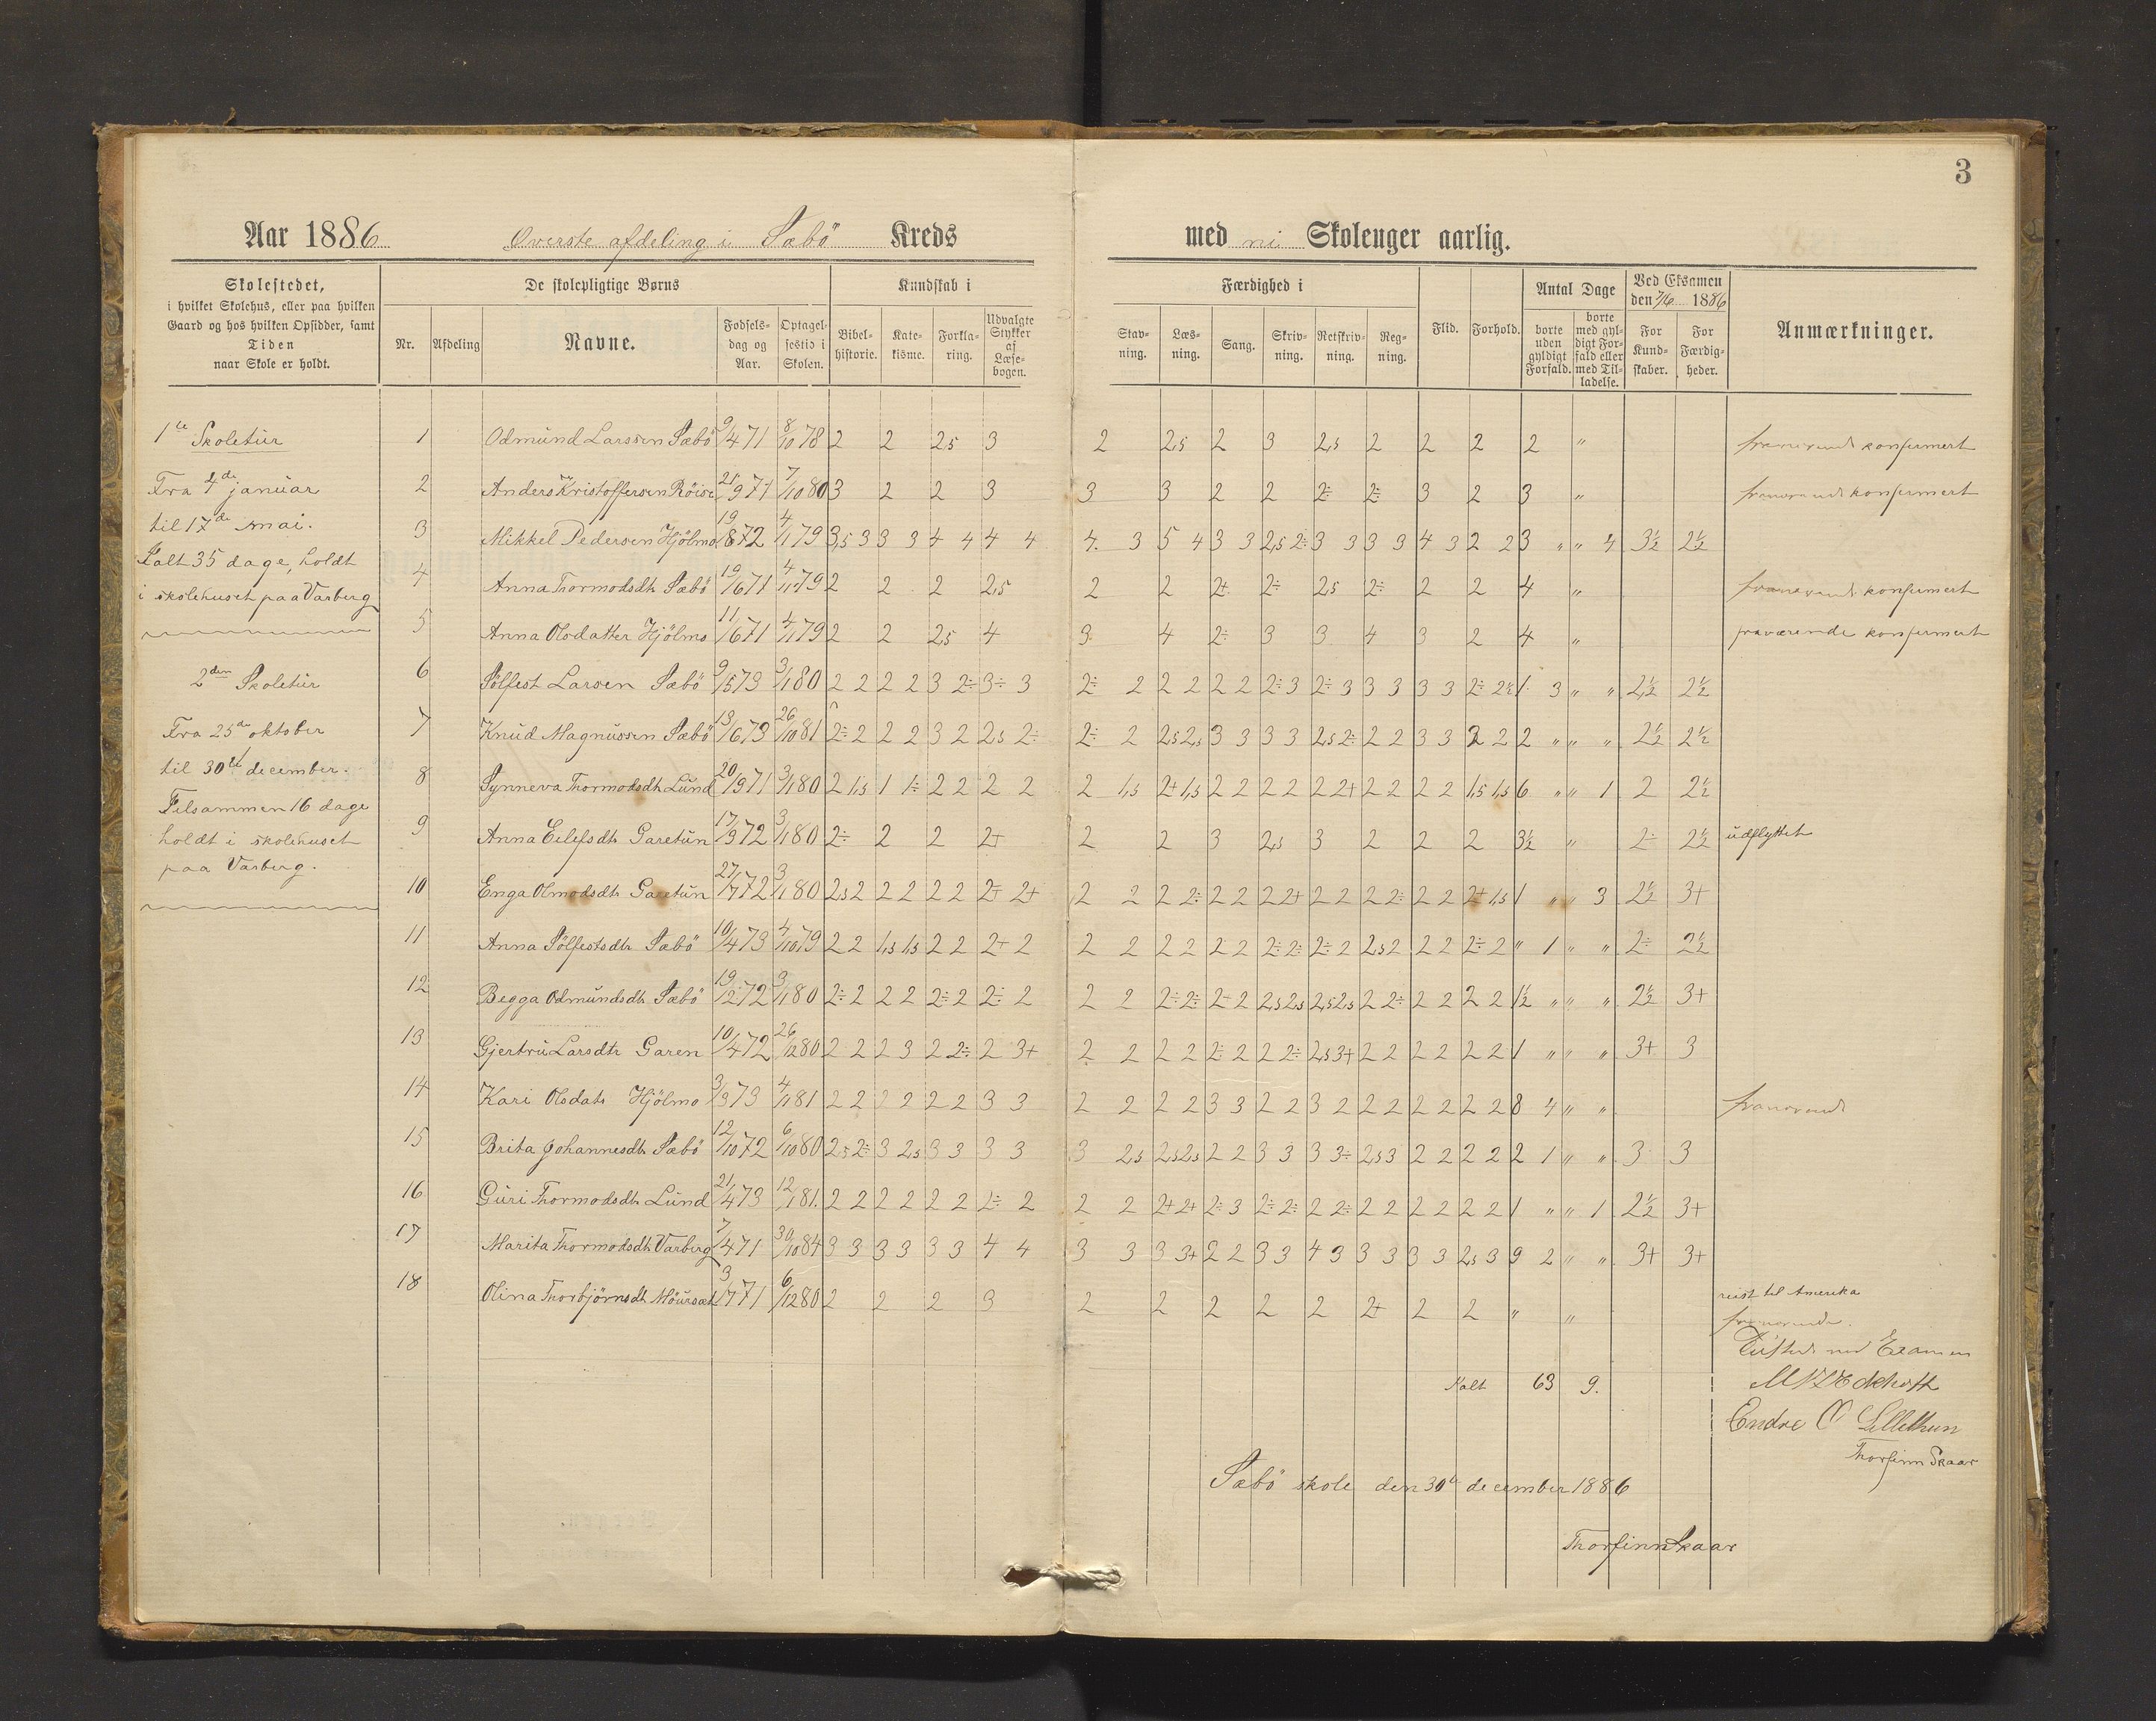 3
Aar 1886 Øverste afdeling i Sæbö Kreds med ni Skoleuger aarlig.
Skolestedet,
i hvilket Skolehus, eller paa hvilken
Gaard og hos hvilken Opsidder, samt
Tiden
naar Skole er holdt.
De skolepligtige Børns
Nr. Afdeling Navne. Fødsels-dag og Aar. Optagel-sestid i Skolen.
Kundskab i
Bibel-historie. Kate-kisme. Forkla-ring. Udvalgte Stykker af Læse-bogen.
Færdighed i
Stav-ning. Læs-ning. Sang. Skriv-ning. Retskriv-ning. Reg-ning.
Flid. Forhold.
Antal Dage
borte uden gyldigt Forfald. borte med gyl-digt For-fald eller med Til-ladelse.
Ved Eksamen
den 7/6 1886
For Kund-skaber. For Færdig-heder.
Anmærkninger.
1te Skoletur
Fra 4de januar
til 17de mai.
Ialt 35 dage, holdt
i skolehuset paa Varberg
2den Skoletur
Fra 25de oktober
til 30te december.
Tilsammen 16 dage
holdt i skolehuset
paa Varberg.
1 Odmund Larssen Sæbö 9/4 71 8/10 78 2 2 2,5 3 2 2,5 2 3 2,5 2 2 2 2 " fraværende konfirmert
2 Anders Kristoffersen Röise 21/9 71 7/10 80 3 2 2 3 3 3 2 2 2÷ 2÷ 3 2 3 " fraværende konfirmert
3 Mikkel Pedersen Hjölmo 19/8 72 4/1 79 3,5 3 3 3 4 4 4 4 4 3 5 4 3 3 2,5 2÷ 3 3 3 3 4 3 2 2 3 " " 4 3½ 2½
4 Anna Tormodsdtr Sæbö 19/6 71 4/11 79 2 2 2 2,5 2 2 2+ 2÷ 2,5 2÷ 2 2 4 " fraværende konfirmert
5 Anna Olsdatter Hjölmo 11/6 71 4/1 79 2 2 2,5 4 3 4 2÷ 3 3 4 3 2 4 " fraværende konfirmert
6 Sölfest Larsen Sæbö 9/5 73 3/1 80 2 2 2 2 3 2÷ 3÷ 3 2÷ 2 2 2 2 2 2÷ 3 2÷ 3 3 3 3 3 2÷ 2½ 1 3 " " 2½ 2½
7 Knud Magnussen Sæbö 13/6 73 26/10 81 2÷ 2 2 2 3 2 2,5 2÷ 2÷ 2 2,5 2,5 3 3 3 3 2,5 2÷ 2 2 3 3 2 2 2 " " " 2½ 2½
8 Synneva Thormodsdtr Lund 20/9 71 3/1 80 2 1,5 1 1÷ 2 2 2 2 2 1,5 2+ 1,5 2 2 2 2 2 2+ 2 2 2 2 1,5 1,5 6 " " 1 2 2½
9 Anna Eilefsdtr Garetun 17/9 72 3/1 80 2÷ 2 2 2+ 2 2 3 2,5 3 2 2 2 3½ " 2÷ 2½ udflyttet
10 Enga Olmodsdtr Garetun 27/7 72 3/1 80 2,5 2 2 2 2 2 2÷ 2+ 2 2 2 2÷ 2 2 2 2+ 2 2 2 2÷ 2 2 2+ 1,5 1 " " 3 2½ 3+
11 Anna Sölfestsdtr Sæbö 10/4 73 4/10 79 2 2 1,5 1,5 2 2 2+ 2 2 2 2 2 2 2 2÷ 2÷ 2÷ 2 2,5 2 2 2 2÷ 2 " 1 " " 2÷ 2½
12 Begga Odmundsdtr Sæbö 19/12 72 3/1 80 2÷ 2 2 2 2÷ 2 2÷ 2 2 2 2÷ 2÷ 2+ 2 2,5 2,5 2,5 2,5 2 2÷ 2 2 2 2 1½ " " " 2½ 3+
13 Gjertru Larsdtr Garen 10/4 72 26/12 80 2 2 2 3 2 2÷ 2 3+ 2 2 2 2 2÷ 2 2 2÷ 2,5 3+ 2 2 2 2 2 2 1 " " " 3+ 3
14 Kari Olsdatr Hjölmo 3/3 73 4/1 81 2 2 2 2 2 2 3 3 2 2 2 2 3 3 2 2 3 2 2 2 2 2 2 2 8 4 " " fraværende
15 Brita Johannesdtr Sæbö 12/10 72 6/10 80 2,5 2÷ 3 2,5 3 3 3 3 3 2,5 2,5 2,5 2 2 3 3 3 3÷ 2,5 3 2 2 2 2 2 1 " " 3 3
16 Guri Thormodsdtr Lund 21/4 73 12/1 81 2 2 2 2 2 2 2÷ 2 2 2 2+ 2+ 2÷ 3 2÷ 2÷ 2 2÷ 2 2 2 2 2 2 1 " " 1 2½ 3+
17 Marita Thormodsdtr Varberg 7/4 71 30/10 84 3 3 3 3 3 3 4 4 3 3 3 3+ 2 2 3 3 4 3 3 3 3 3 2,5 3 9 2 " " 3+ 3+
18 Olina Thorbjörnsdtr Möursæt 3/7 71 6/12 80 2 2 2 3 2 2 2 2 2 2+ 2 2 " "
reist til Amerika
fraværende.
Ialt 63 9.
Tilstede ved Examen
Endre O Lillethun
Thorfinn Skaar
Sæbö skole den 30te december 1886
Thorfinn Skaar